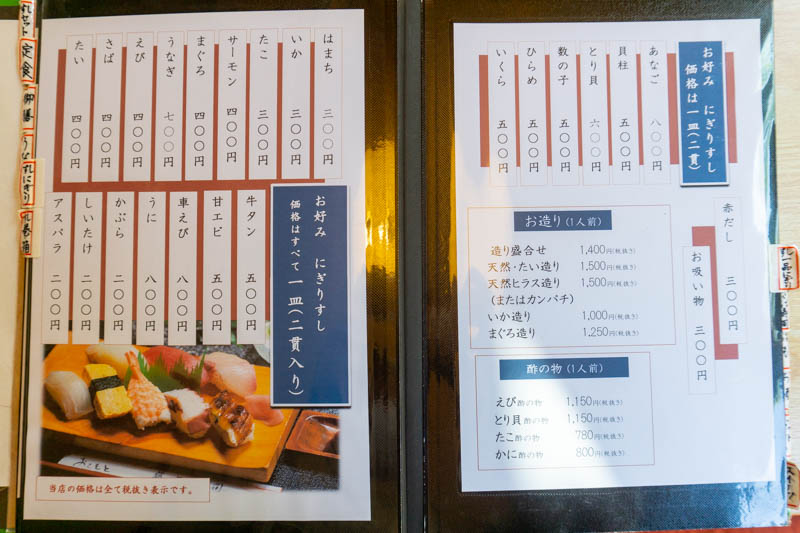 お好み にぎりすし
価格は一皿(二貫)
あなご 八〇〇円
貝柱 五〇〇円
とり貝 六〇〇円
数の子 五〇〇円
ひらめ 五〇〇円
いくら 五〇〇円
赤だし 三〇〇円
お吸い物 三〇〇円
お造り(1人前)
造り盛合せ 1,400円(税抜き)
天然・たい造り 1,500円(税抜き)
天然ヒラス造り 1,500円(税抜き)
(またはカンパチ)
いか造り 1,000円(税抜き)
まぐろ造り 1,250円(税抜き)
酢の物(1人前)
えび酢の物 1,150円(税抜き)
とり貝酢の物 1,150円(税抜き)
たこ酢の物 780円(税抜き)
かに酢の物 800円(税抜き)
はまち 三〇〇円
いか 三〇〇円
たこ 三〇〇円
サーモン 四〇〇円
まぐろ 四〇〇円
うなぎ 七〇〇円
えび 四〇〇円
さば 四〇〇円
たい 四〇〇円
お好み にぎりすし
価格はすべて 一皿(二貫入り)
牛タン 五〇〇円
甘エビ 五〇〇円
車えび 八〇〇円
うに 八〇〇円
かぶら 二〇〇円
しいたけ 二〇〇円
アスパラ 二〇〇円
当店の価格は全て税抜き表示です。
定食